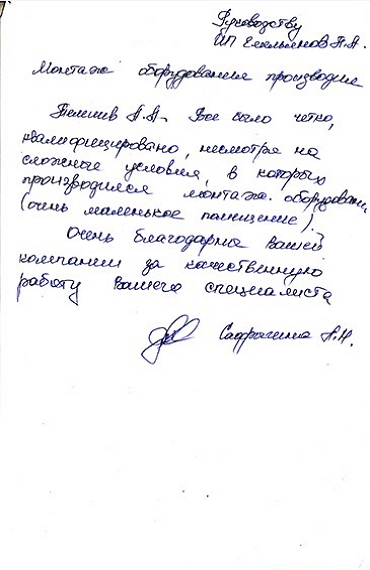 Руководству
ИП Гильманов П.А.
Монтаж оборудования производил
Телешив А.А. Все было четко,
квалифицировано, несмотря на
сложные условия, в которых
производился монтаж оборудован.
(очень маленькое помещение).
Очень благодарна Вашей
компании за качественную
работу Вашего специалиста
Н.Н.